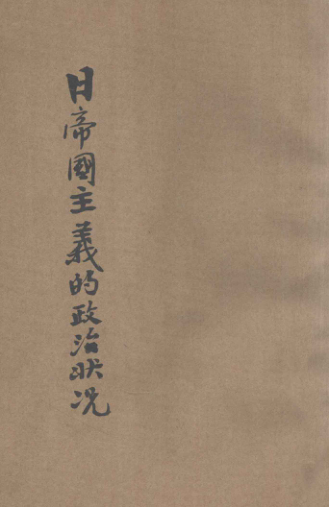 日帝國主義的政治狀况